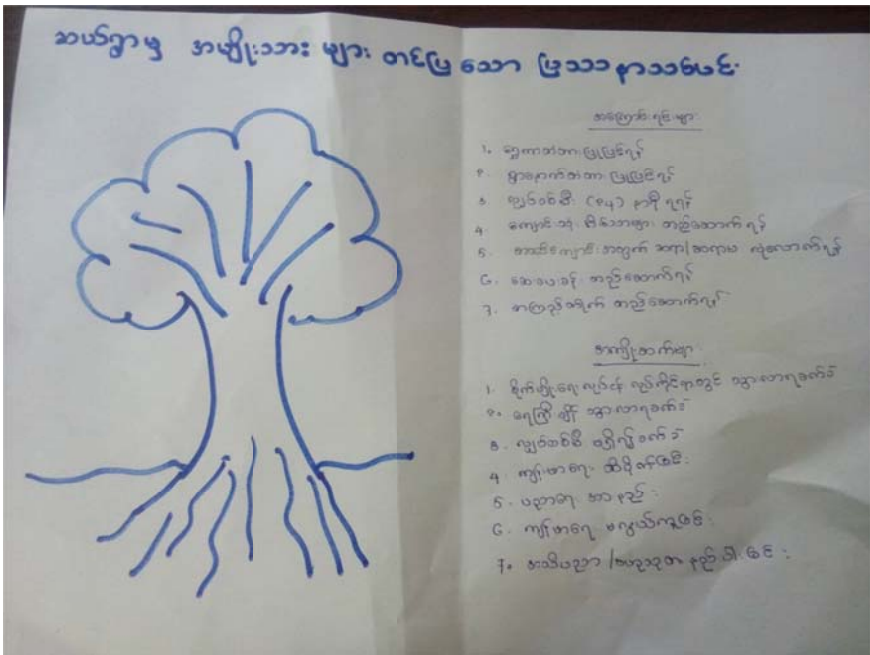 ဆယ်ရွာမှ အမျိုးသား များ တင်ပြ သော ပြဿနာသစ်ပင်
အကြောင်းရင်းများ
၁. တံတားပြုပြင်ရန်
၂. ရွာနောက်တံတားပြုပြင်ရန်
၃. လျှပ်စစ်မီး (၂၄) နာရီ ရရန်
၄. ကျောင်းသုံး အိမ်သာများ တည်ဆောက်ရန်
၅. ဆရာ/ဆရာမ လုံလောက်ရန်
၆. ဆေးပေးခန်း တည်ဆောက်ရန်
၇. စာကြည့်တိုက် တည်ဆောက်ရန်
အကျိုးဆက်များ
၁. စိုက်ပျိုးရေး လုပ်ငန်း လုပ်ကိုင်ရာတွင် သွားလာရခက်ခဲ
၂. ရေကြီးချိန် သွားလာရခက်ခဲ
၃. လျှပ်စစ်မီး မရှိလျှင်ခက်ခဲ
၄. ကျန်းမာရေး ထိခိုက်ခြင်း
၅. ပညာရေး အားနည်း
၆. ကျန်းမာရေး မလွယ်ကူခြင်း
၇. အသိပညာ/ဗဟုသုတ နည်းပါးခြင်း